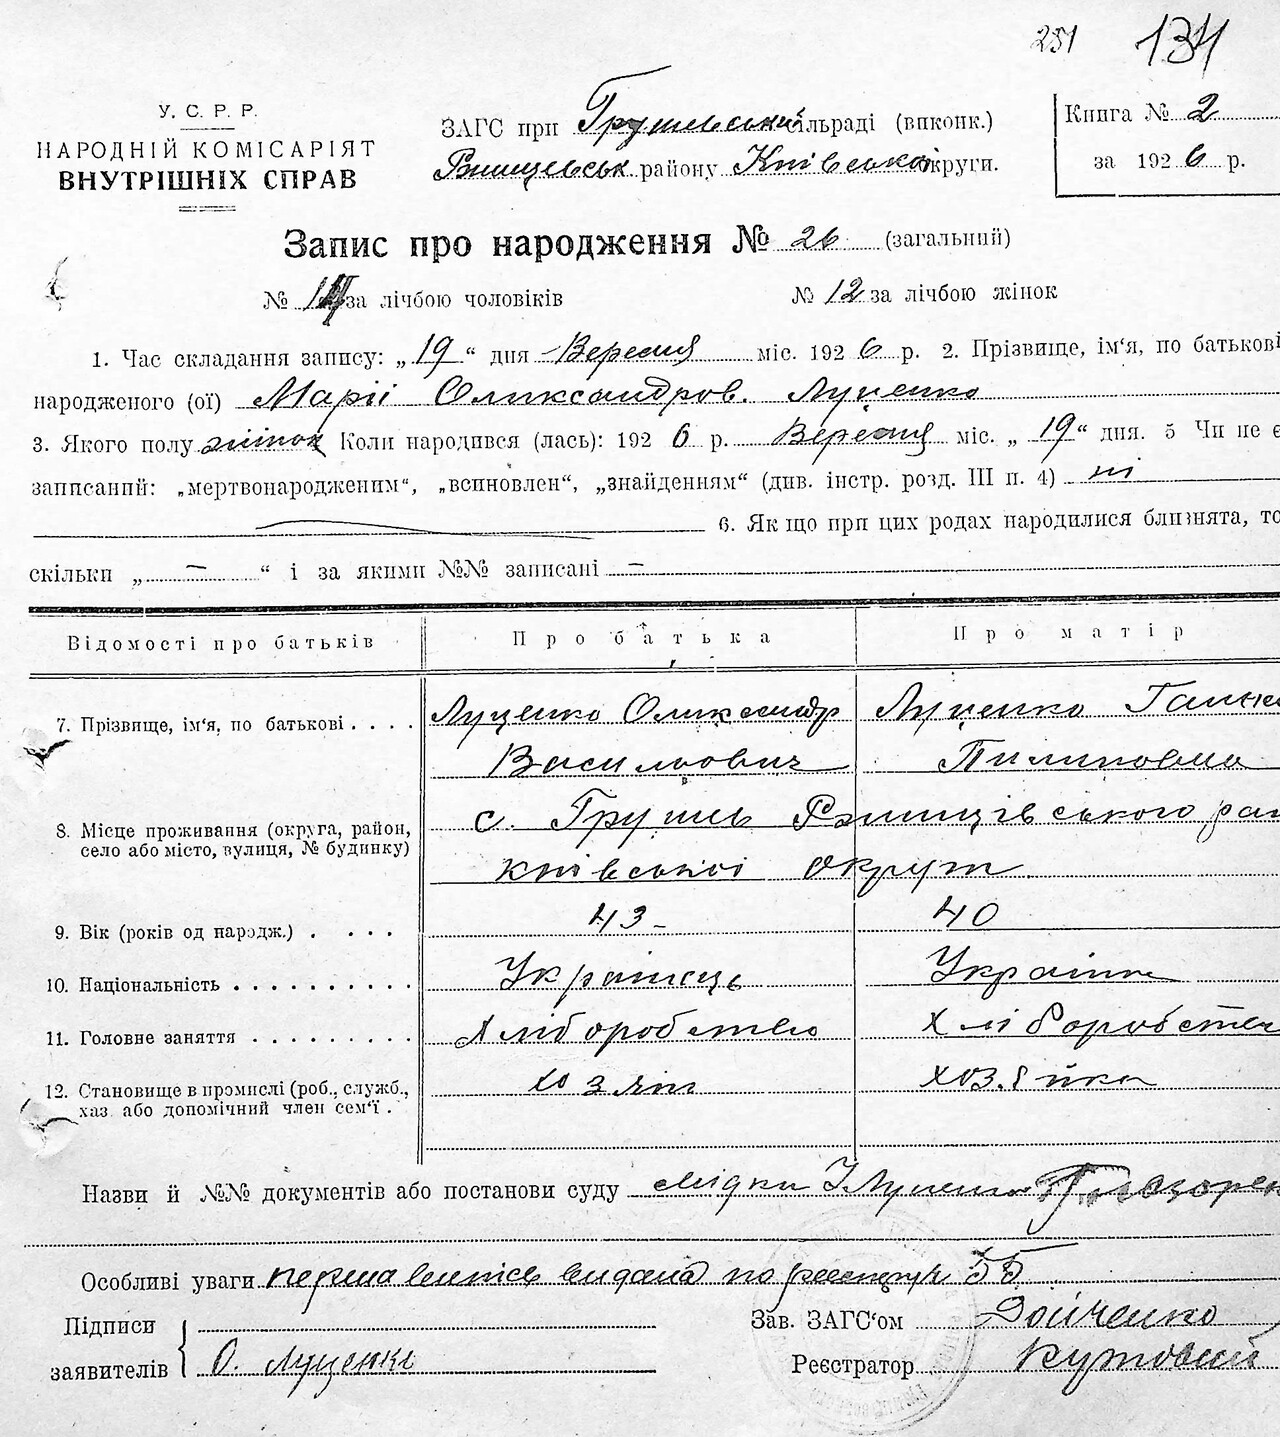 251 134
У. С. Р. Р.
НАРОДНІЙ КОМІСАРІЯТ
ВНУТРІШНІХ СПРАВ
ЗАГС при Грушевській сільраді (виконк.)
Ржищевськ району Київської округи.
Книга № 2
за 1926 р.
Запис про народження № 26 (загальний)
№ за лічбою чоловіків № 12 за лічбою жінок
1. Час складання запису: „19“ дня Вересня міс. 1926 р. 2. Прізвище, ім'я, по батькові
народженого (ої) Марії Олександров. Луценко
3. Якого полу жіноч Коли народився (лась): 1926 р. Вересня міс. „19“ дня. 5 Чи не є
записаний: „мертвонародженим“, „всиновлен“, „знайденням“ (див. інстр. розд. III п. 4) ні
6. Якщо при цих родах народилися близнята, то
скільки „ — “ і за якими №№ записані —
Відомості про батьків Про батька Про матір
7. Прізвище, ім'я, по батькові . . . . Луценко Олександр Луценко Ганна
Васильович Пилиповна
8. Місце проживання (округа, район,
село або місто, вулиця, № будинку)
с. Грушів Ржищівського рай
київської округи
9. Вік (років од народж.) . . . . . 43 - 40
10. Національність . . . . . . . . . . Українець Українка
11. Головне заняття . . . . . . . . . Хліборобство Хліборобство
12. Становище в промислі (роб., служб.,
хаз. або допомічний член сем'ї .
хозяїн хозяйка
Назви й №№ документів або постанови суду
Особливі уваги перша випись видана по реєстру № 55
Підписи
заявителів О. Луценко
Зав. ЗАГС'ом Дойченко
Реєстратор Кутовий